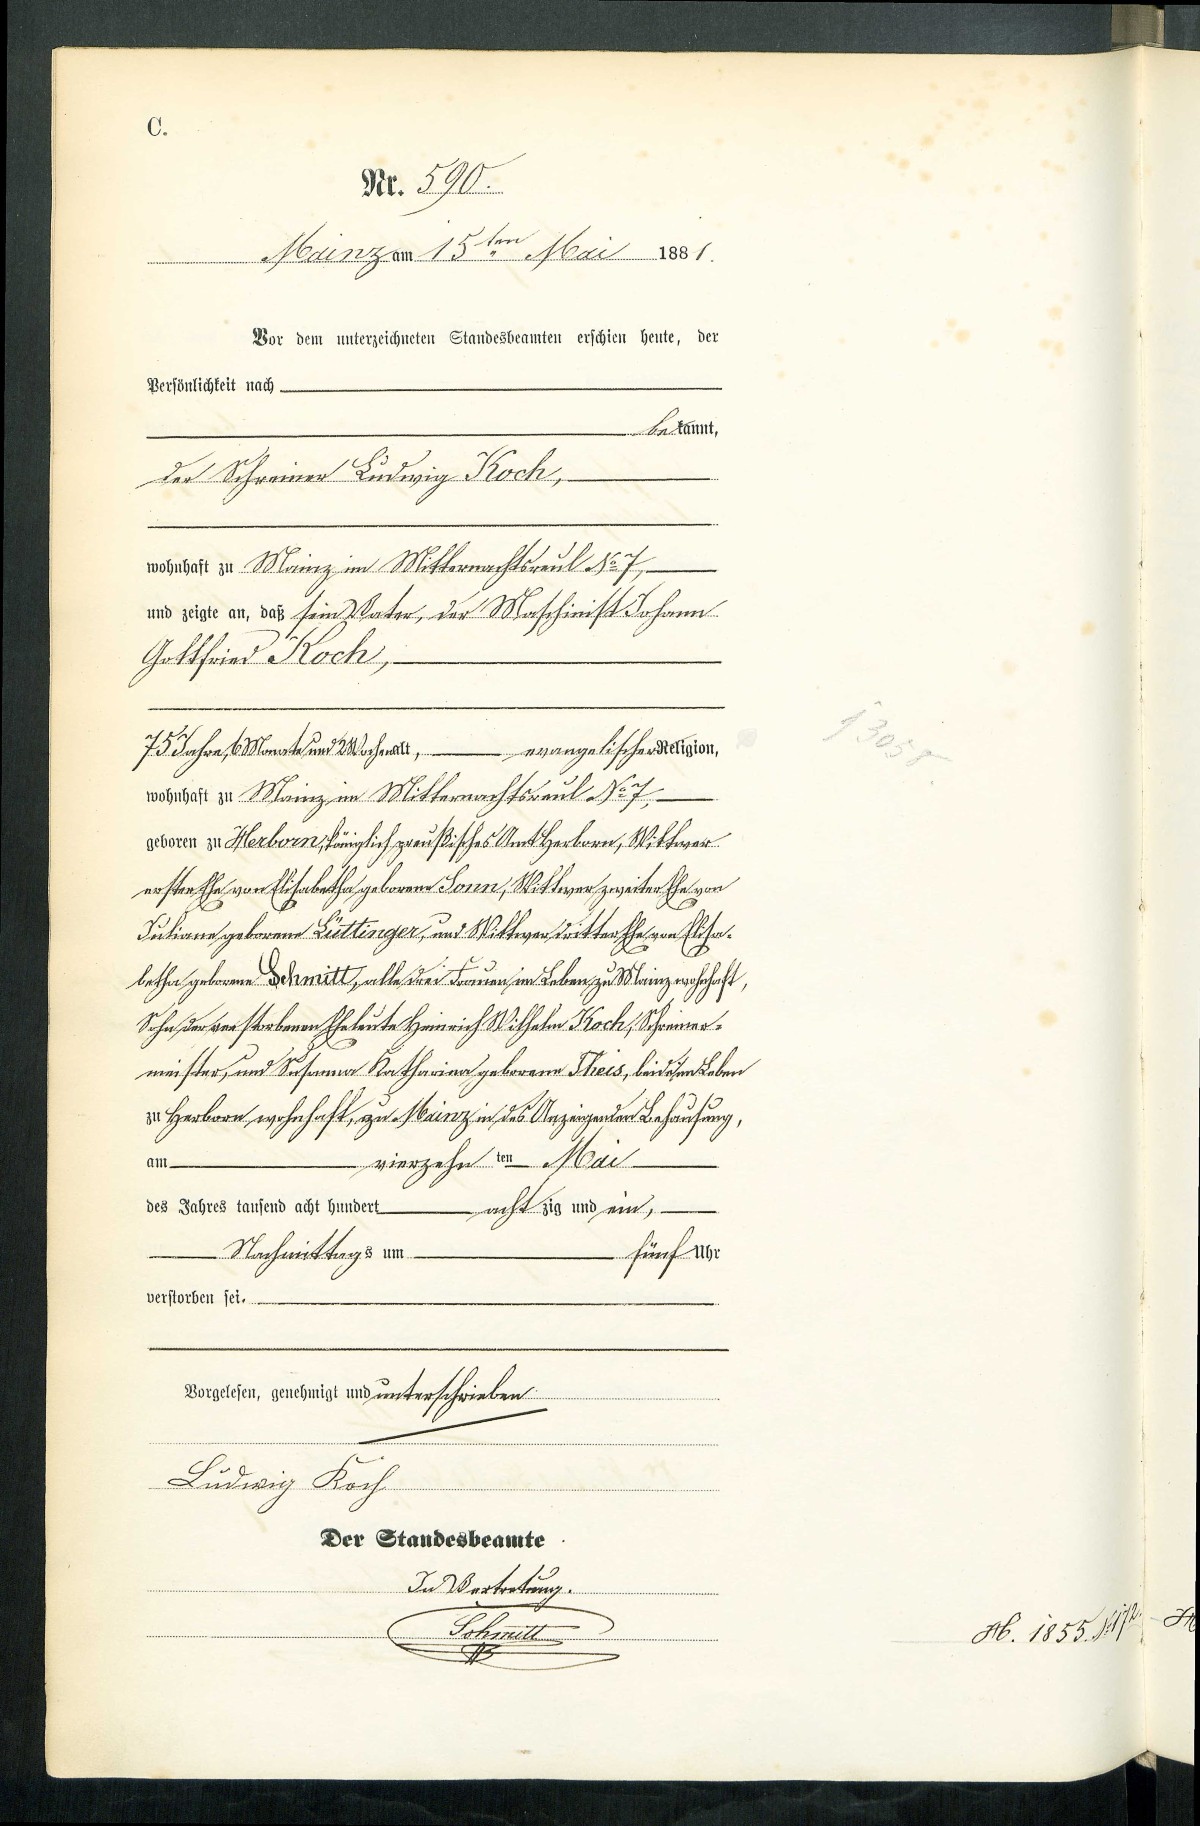 C.
Nr. 590.
Mainz am 15ten Mai 1881.
Vor dem unterzeichneten Standesbeamten erschien heute, der
Persönlichkeit nach
bekannt,
der Schreiner Ludwig Koch,
wohnhaft zu Mainz im Mitternachtsreul No 7,
und zeigte an, daß sein Vater, der Maschinist Johann
Gottfried Koch,
75 Jahre, 6 Monate und 2 Wochen alt, evangelischer Religion,
wohnhaft zu Mainz im Mitternachtsreul No 7,
geboren zu Herborn, königlich preußisches Amt Herborn, Wittwer
erster Ehe von Elisabetha geborene Sonn, Wittwer zweiter Ehe von
Juliane geborene Lüttinger, und Wittwer dritter Ehe von Elisa-
betha geborene Schmitt, alle drei Frauen im Leben zu Mainz wohnhaft,
Sohn der verstorbenen Eheleute Heinrich Wilhelm Koch, Schreiner-
meister, und Susanna Katharina geborene Theis, beide im Leben
zu Herborn wohnhaft, zu Mainz in des Anzeigenden Behausung,
am vierzehn ten Mai
des Jahres tausend acht hundert acht zig und ein,
Nachmittags um fünf Uhr
verstorben sei.
Vorgelesen, genehmigt und unterschrieben
Ludwig Koch
Der Standesbeamte
In Vertretung.
Schmitt
H. 1855. No 172.